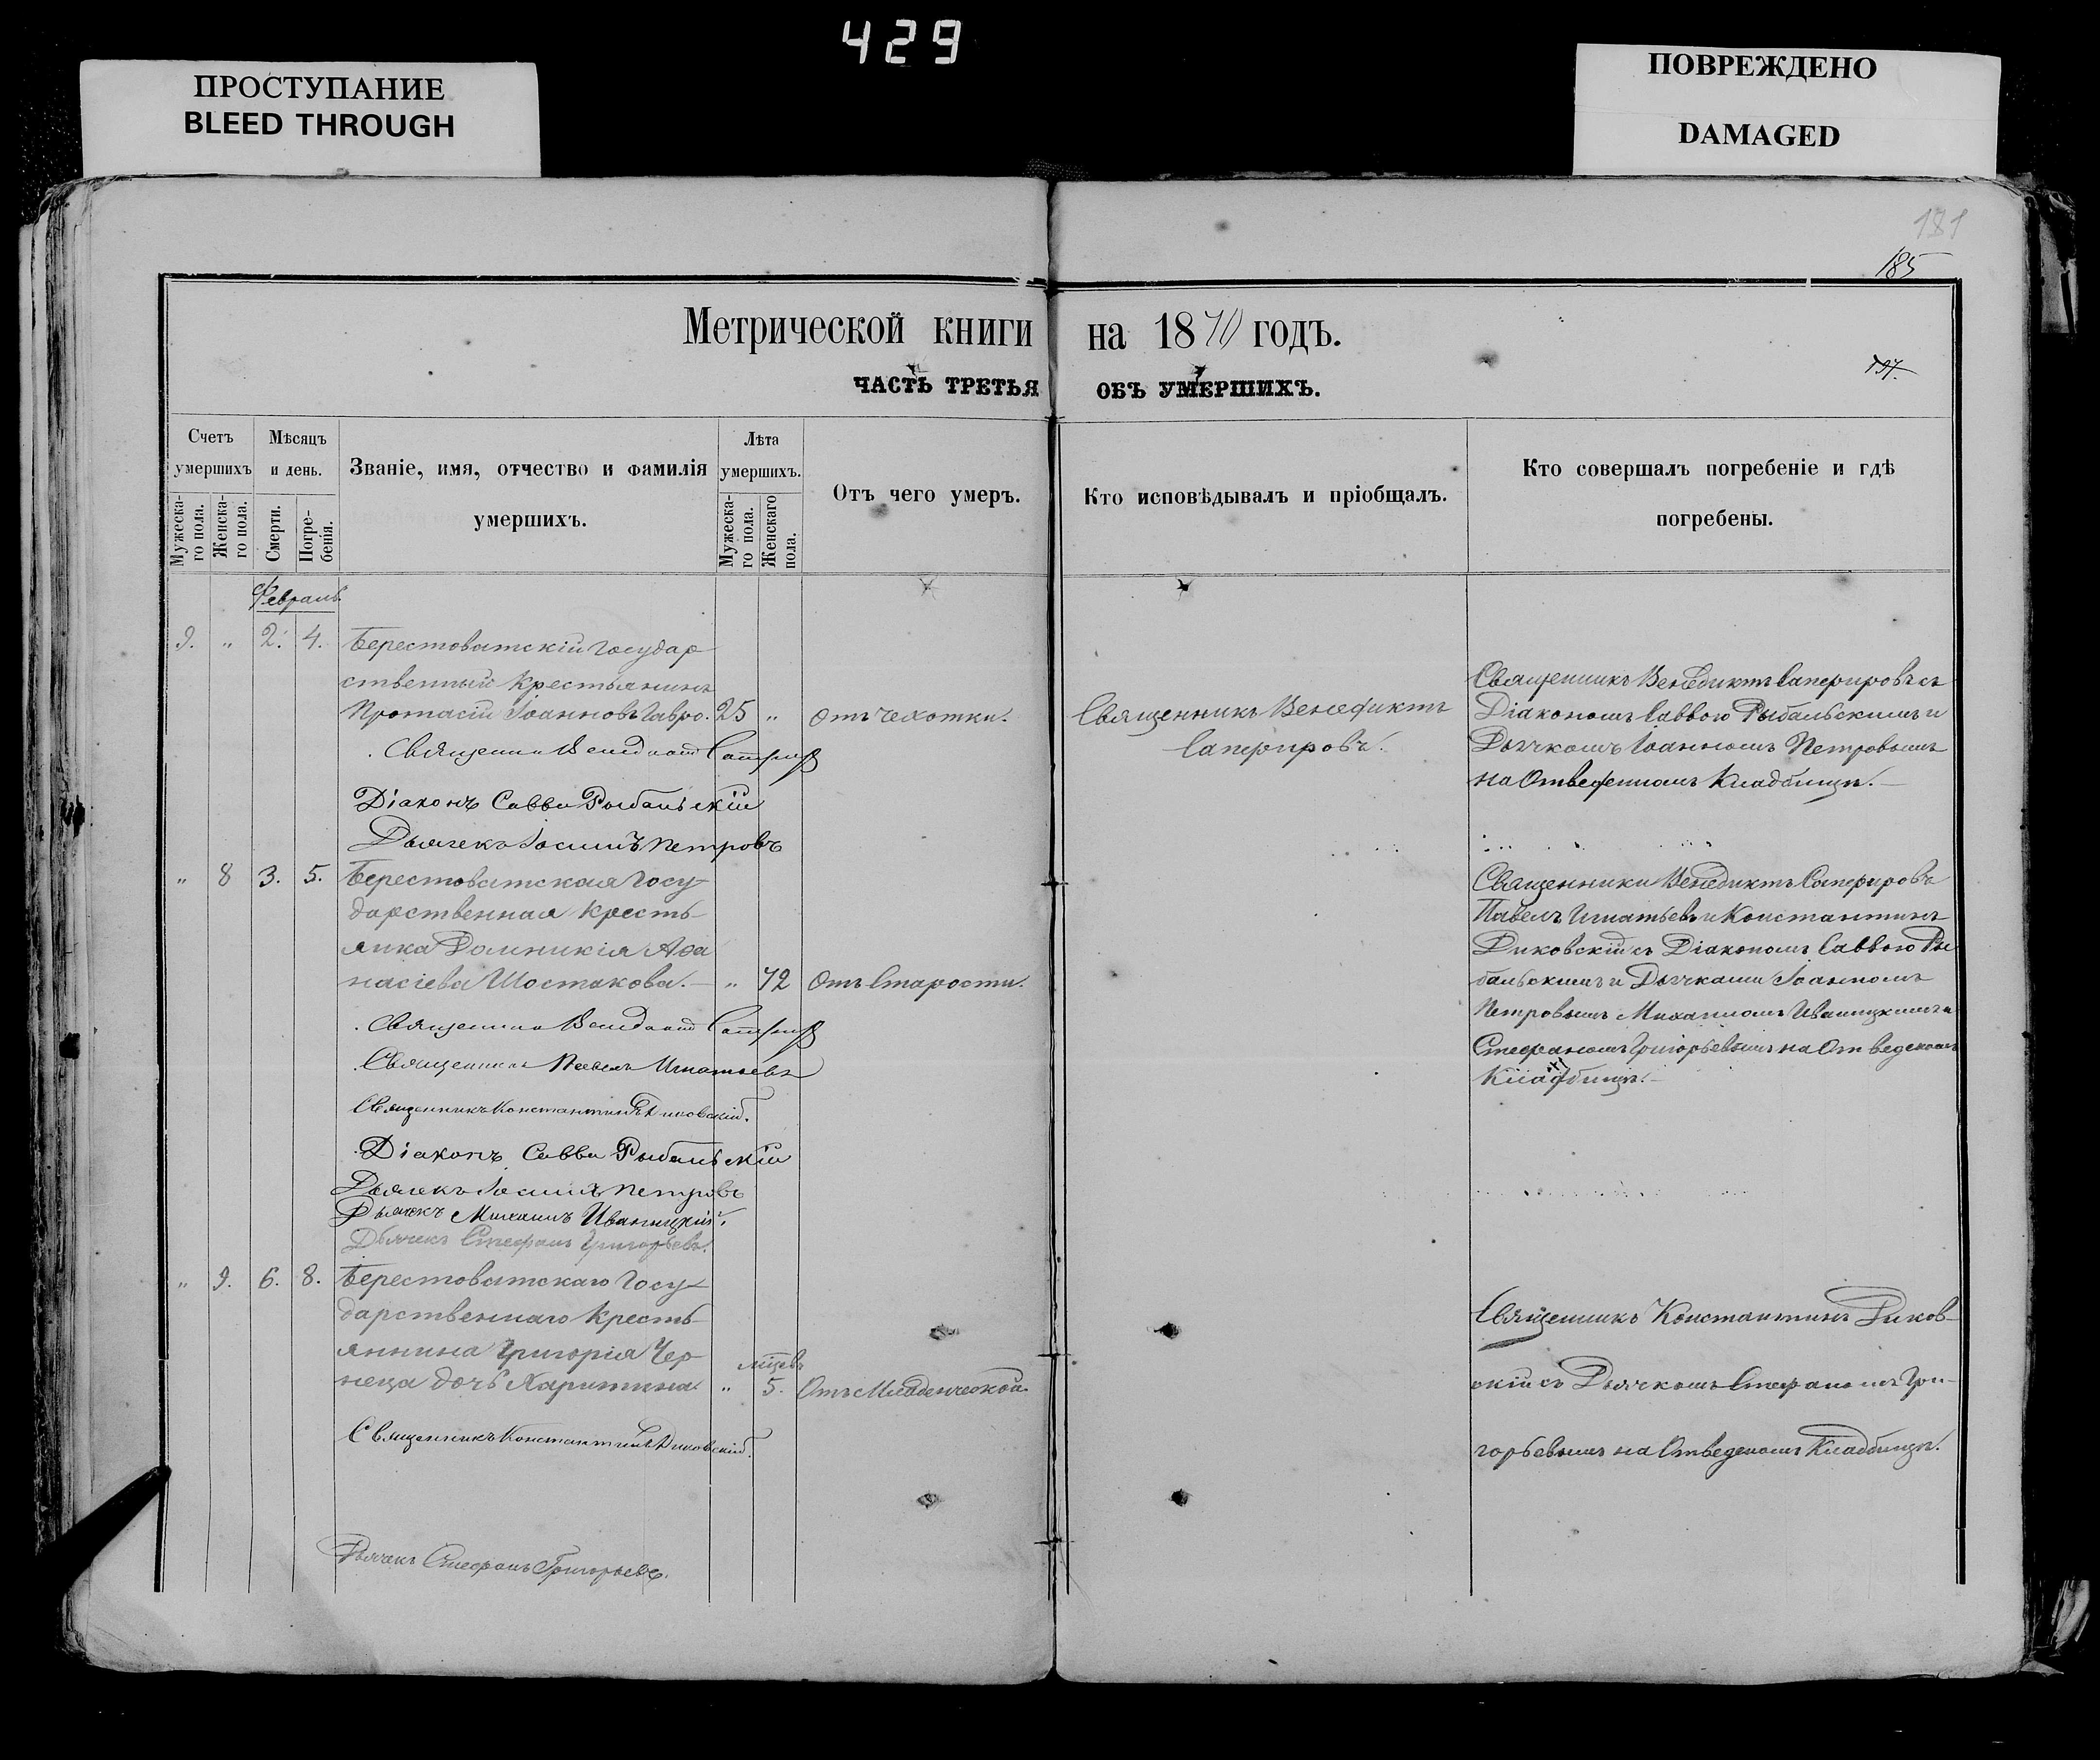 429
ПРОСТУПАНИЕ
BLEED THROUGH
ПОВРЕЖДЕНО
DAMAGED
181
185
Метрической книги на 1870 годъ.
ЧАСТЬ ТРЕТЬЯ ОБЪ УМЕРШИХЪ.
Счетъ умершихъ
Мужеска-го пола.
Женска-го пола.
Мѣсяцъ и день.
Смерти.
Погре-бенія.
Званіе, имя, отчество и фамилія
умершихъ.
Лѣта умершихъ.
Мужеска-го пола.
Женскаго пола.
Отъ чего умеръ.
Кто исповѣдывалъ и пріобщалъ.
Кто совершалъ погребеніе и гдѣ
погребены.
Февраль
9. " 2. 4. Берестоватскій государ
ственный крестьянинъ
Протасій Іоанновъ Гавро. 25 " Отъ чехотки.
Священникъ Венедиктъ
Сапфировъ.
Священникъ Венедиктъ Сапфировъ съ
Діакономъ Саввою Рыбальскимъ и
Дьячкомъ Іоанномъ Петровымъ
на Отведенномъ Кладбищѣ.
Священникъ Венедиктъ Сапфировъ
Діаконъ Савва Рыбальскій
Дьячекъ Іоаннъ Петровъ
" 8 3. 5. Берестоватская Госу
дарственная кресть
янка Домникія Аѳа
насіева Шостакова. " 72 Отъ Старости.
Священники Венедиктъ Сапфировъ
Павелъ Игнатьевъ и Константинъ
Диковскій съ Діакономъ Саввою Ры
бальскимъ и Дьячками Іоанномъ
Петровымъ Михаиломъ Иваницкимъ и
Стефаномъ Григорьевымъ на Отведеномъ
Кладбищѣ.
Священникъ Венедиктъ Сапфировъ
Священникъ Павелъ Игнатьевъ
Священникъ Константинъ Диковскій.
Діаконъ Савва Рыбальскій
Дьячекъ Іоаннъ Петровъ
Дьячекъ Михаилъ Иваницкій.
Дьячекъ Стефанъ Григорьевъ.
" 9. 6. 8. Берестоватскаго Госу
дарственнаго кресть
яннина Григорія Чер
неца дочь Харитина. " 5. Отъ Младенческой.
Священникъ Константинъ Диков
скій съ Дьячкомъ Стефаномъ Гри
горьевымъ на Отведеномъ Кладбищѣ.
Священникъ Константинъ Диковскій.
Дьячекъ Стефанъ Григорьевъ.